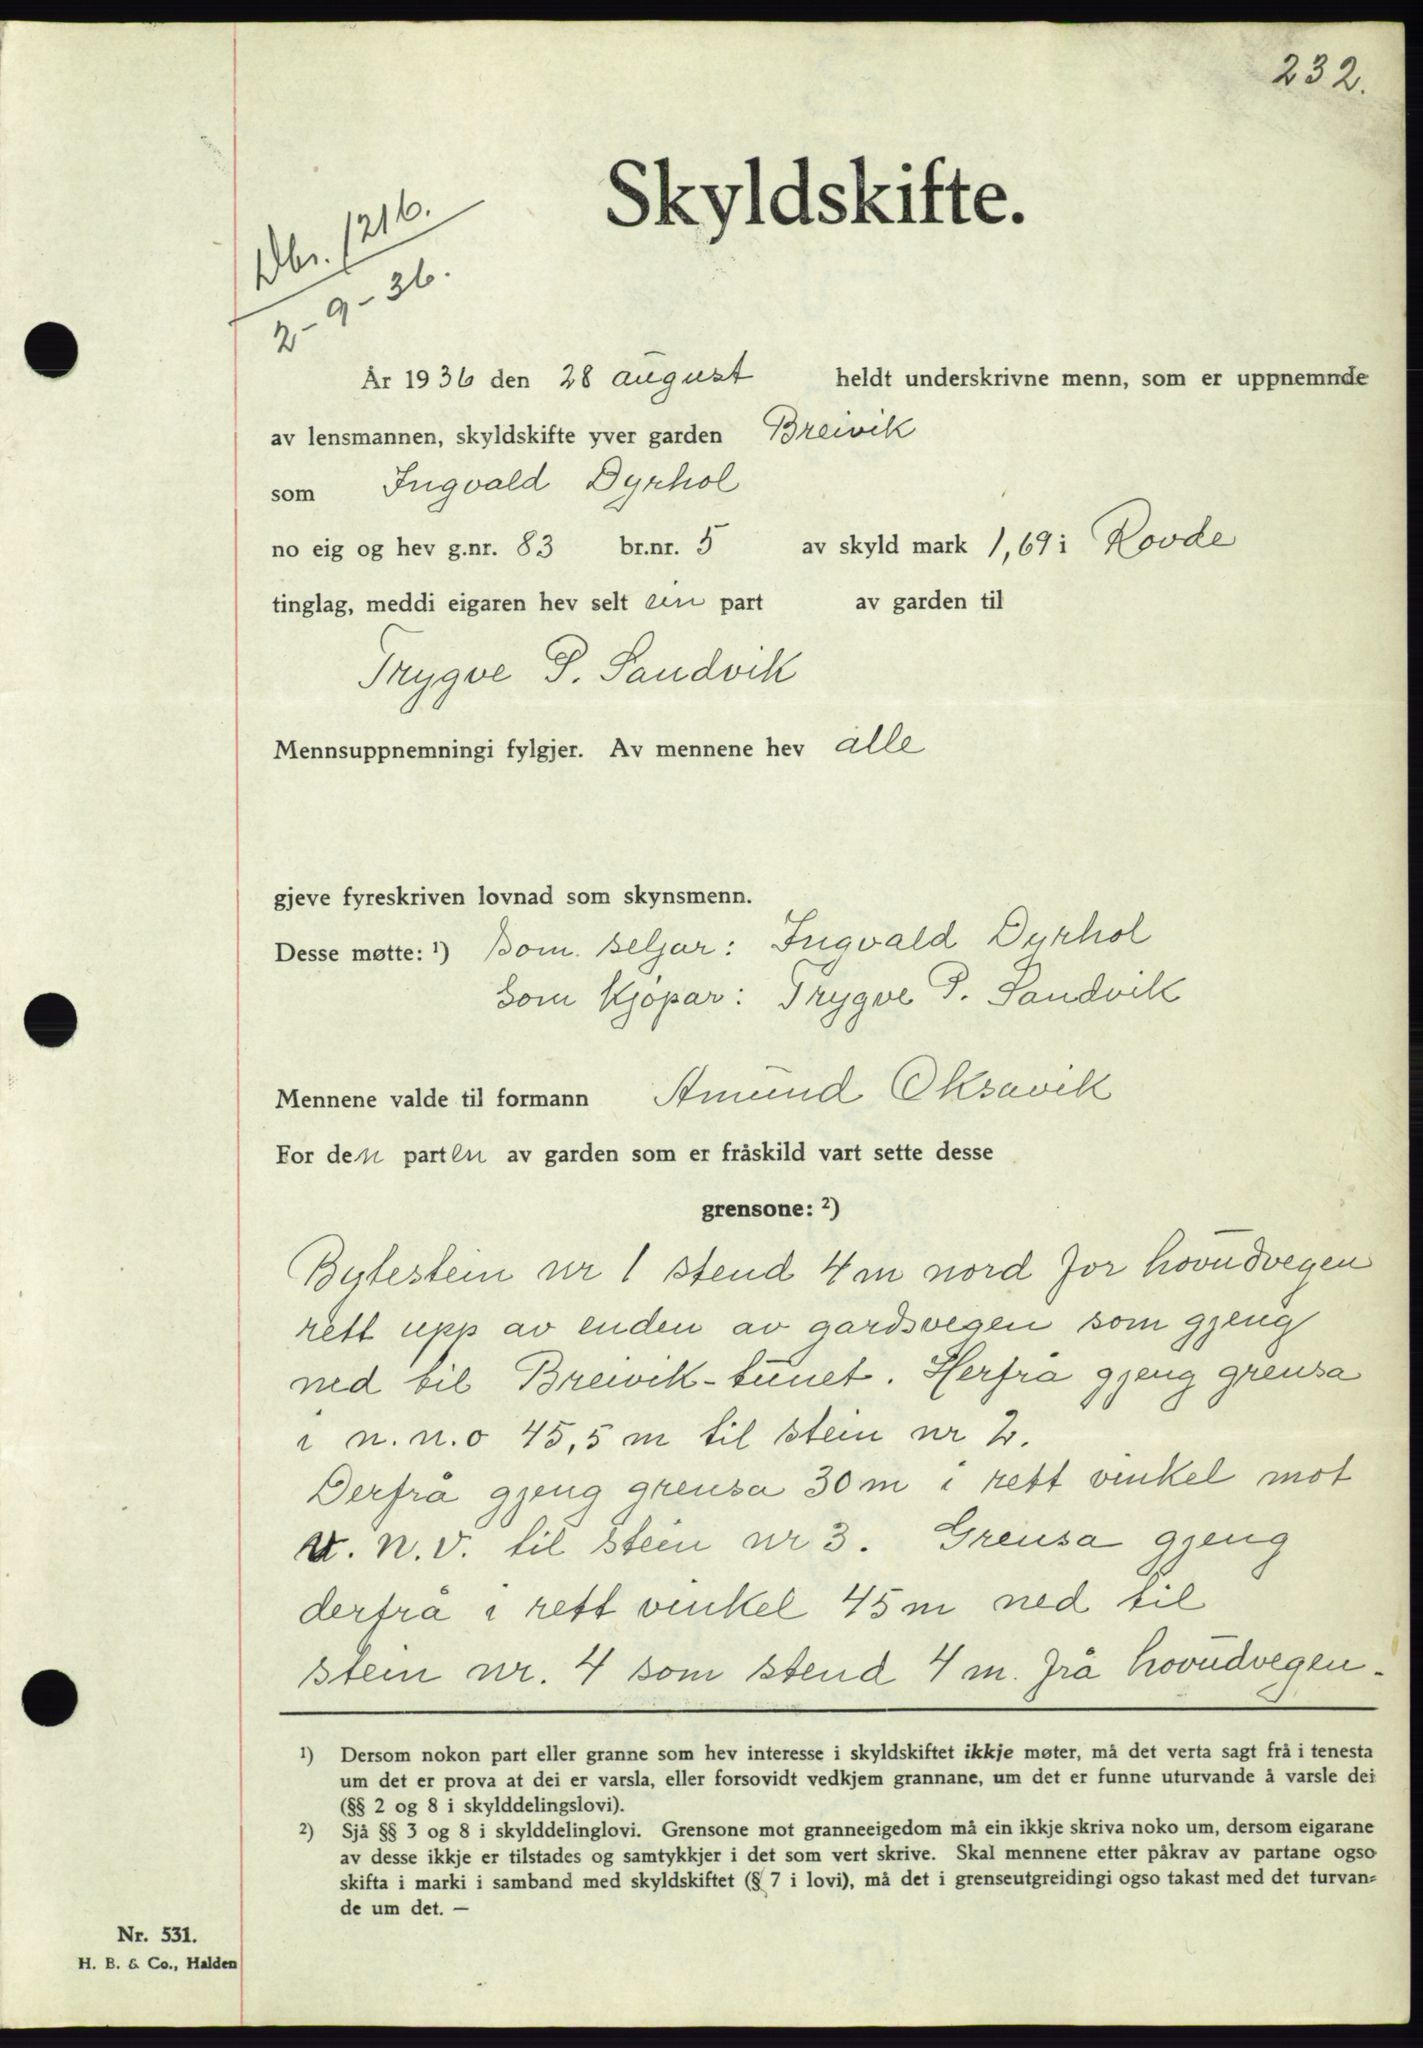 232.
Skyldskifte.
Dbr. 1216.
2-9-36.
År 1936 den 28 august heldt underskrivne menn, som er uppnemnde
av lensmannen, skyldskifte yver garden Breivik
som Ingvald Dyrhol
no eig og hev g.nr. 83 br.nr. 5 av skyld mark 1,69 i Rovde
tinglag, meddi eigaren hev selt ein part av garden til
Trygve P. Sandvik
Mennsuppnemningi fylgjer. Av mennene hev alle
gjeve fyreskriven lovnad som skynsmenn.
Desse møtte: ¹) Som. seljar: Ingvald Dyrhol
Som kjøpar: Trygve P. Sandvik
Mennene valde til formann Amund Oksavik
For den parten av garden som er fråskild vart sette desse
grensone: ²)
Bytestein nr 1 stend 4 m nord for hovudvegen
rett upp av enden av gardsvegen som gjeng
ned til Breivik-tunet. Herfrå gjeng grensa
i n.n.o 45,5 m til stein nr 2.
Derfrå gjeng grensa 30 m i rett vinkel mot
v. n. v. til stein nr 3. Grensa gjeng
derfrå i rett vinkel 45 m ned til
stein nr. 4 som stend 4 m. frå hovudvegen.
¹) Dersom nokon part eller granne som hev interesse i skyldskiftet ikkje møter, må det verta sagt frå i tenesta
um det er prova at dei er varsla, eller forsovidt vedkjem grannane, um det er funne uturvande å varsle dei
(§§ 2 og 8 i skylddelingslovi).
²) Sjå §§ 3 og 8 i skylddelinglovi. Grensone mot granneeigedom må ein ikkje skriva noko um, dersom eigarane
av desse ikkje er tilstades og samtykkjer i det som vert skrive. Skal mennene etter påkrav av partane ogso
skifta i marki i samband med skyldskiftet (§ 7 i lovi), må det i grenseutgreidingi ogso takast med det turvan=
de um det. —
Nr. 531.
H. B. & Co., Halden